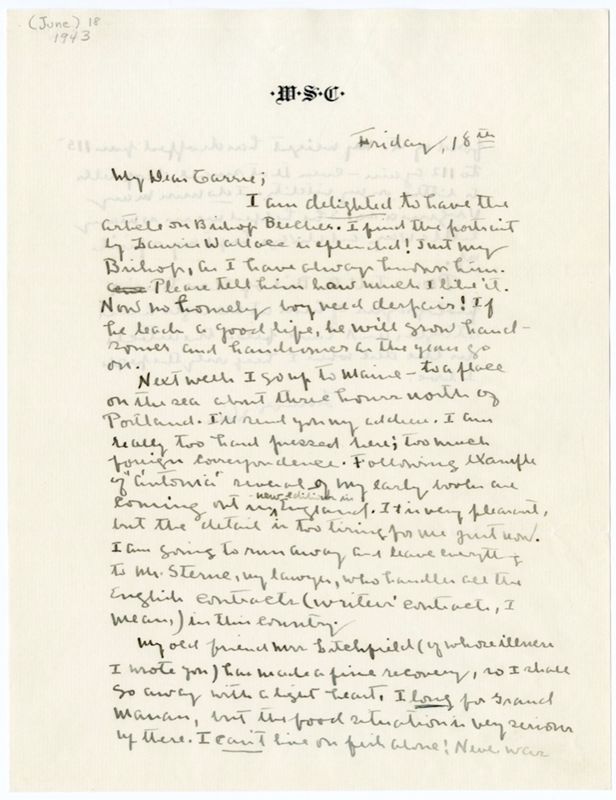 (June) 18
1943
·W·S·C·
Friday, 18th
My Dear Carrie;
I am delighted to have the
article on Bishop Beecher. I find the portrait
by Laurie Wallace is splendid! Just my
Bishop, as I have always known him.
Please tell him how much I like it.
Now no homely boy need despair! If
he leads a good life, he will grow hand-
somer and handsomer as the years go
on.
Next week I go up to Maine - to a place
on the sea about three hours north of
Portland. I'll send you my address. I am
really too hard pressed here; too much
foreign correspondence. Following example
of "Antonia" several of my early books are
coming out in new editions in England. It is very pleasant,
but the detail is too tiring for me just now.
I am going to run away and leave everything
to Mr. Sterne, my lawyer, who handles all the
English contracts (writers' contracts, I
mean,) in this country.
My old friend Mrs Litchfield (of whose illness
I wrote you) has made a fine recovery, so I shall
go away with a light heart. I long for Grand
Manan, but the food situation is very serious
up there. I can't live on fish alone! Never was